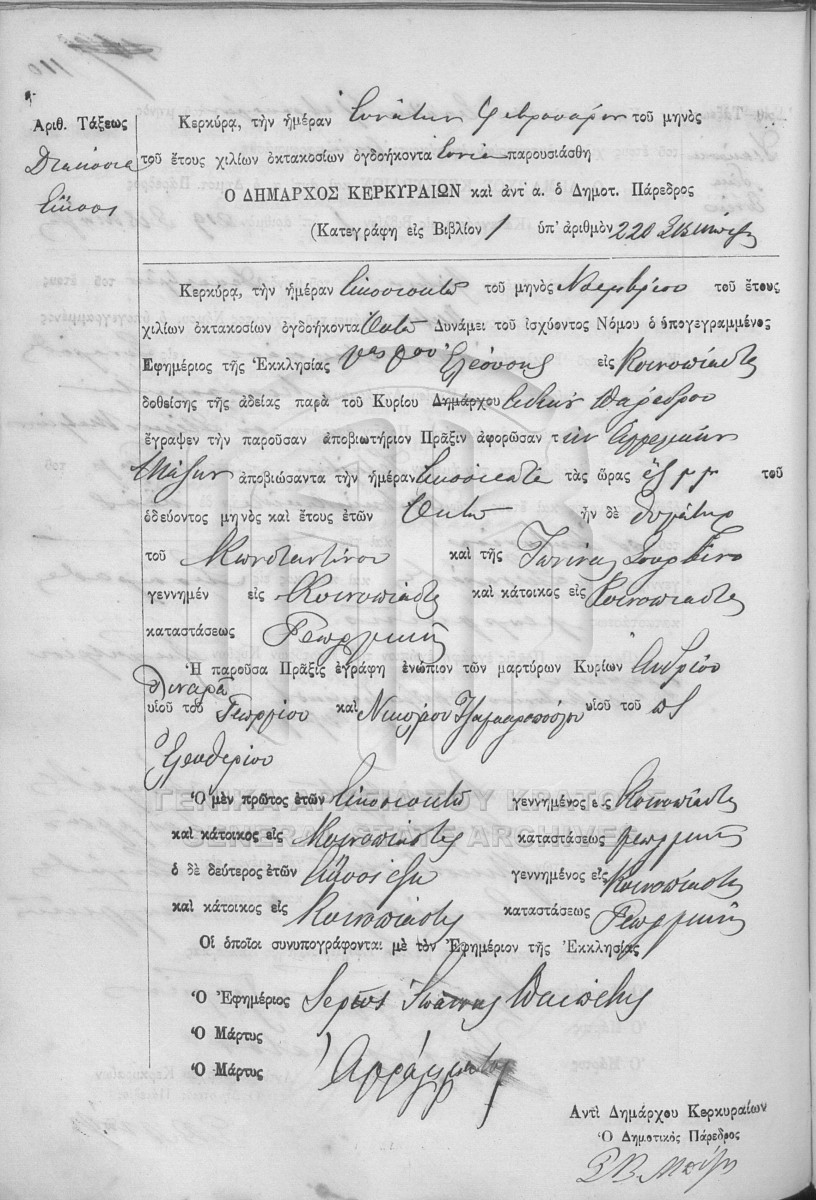 Ἀριθ. Τάξεως
Διακόσια
Εἴκοσι
Κερκύρᾳ, τὴν ἡμέραν Ἐννάτην Φεβρουαρίου τοῦ μηνὸς
τοῦ ἔτους χιλίων ὀκτακοσίων ὀγδοήκοντα Ἐννέα παρουσιάσθη
Ὁ ΔΗΜΑΡΧΟΣ ΚΕΡΚΥΡΑΙΩΝ καὶ ἀντ' α. ὁ Δημοτ. Πάρεδρος
(Κατεγράφη εἰς Βιβλίον 1 ὑπ' ἀριθμὸν 220
Κερκύρᾳ, τὴν ἡμέραν Εἰκοσιοκτώ τοῦ μηνὸς Νοεμβρίου τοῦ ἔτους
χιλίων ὀκτακοσίων ὀγδοήκοντα Ὀκτώ Δυνάμει τοῦ ἰσχύοντος Νόμου ὁ ὑπογεγραμμένος
Ἐφημέριος τῆς Ἐκκλησίας Ἐλεούσης εἰς Κοινοπιάστες
δοθείσης τῆς ἀδείας παρὰ τοῦ Κυρίου Δημάρχου Εἰδικοῦ Παρέδρου
ἔγραψεν τὴν παροῦσαν ἀποβιωτήριον Πρᾶξιν ἀφορῶσαν τ ὴν Ἀγγελικὴν
Μάζην ἀποβιώσαντα τὴν ἡμέραν τὰς ὥρας ἕξ μ μ τοῦ
ὁδεύοντος μηνὸς καὶ ἔτους ἐτῶν Ὀκτώ ἦν δὲ θυγάτηρ
τοῦ Κωνσταντίνου καὶ τῆς
γεννημέν εἰς Κοινοπιάστες καὶ κάτοικος εἰς Κοινοπιάστες
καταστάσεως Γεωργικῆς
Ἡ παροῦσα Πρᾶξις ἐγράφη ἐνώπιον τῶν μαρτύρων Κυρίων Ἀνδρέου
Λιναρᾶ
υἱοῦ τοῦ Γεωργίου καὶ Νικολάου υἱοῦ τοῦ πς
Ἐλευθερίου
Ὁ μὲν πρῶτος ἐτῶν Εἰκοσιοκτώ γεννημένος εἰς Κοινοπιάστες
καὶ κάτοικος εἰς Κοινοπιάστες καταστάσεως γεωργικῆς
ὁ δὲ δεύτερος ἐτῶν Εἴκοσι ἕξι γεννημένος εἰς Κοινοπιάστες
καὶ κάτοικος εἰς Κοινοπιάστες καταστάσεως Γεωργικῆς
Οἱ ὁποῖοι συνυπογράφονται μὲ τὸν Ἐφημέριον τῆς Ἐκκλησίας
Ὁ Ἐφημέριος Ἱερεὺς Ἰωάννης
Ὁ Μάρτυς
Ὁ Μάρτυς Ἀγράμματοι
Ἀντὶ Δημάρχου Κερκυραίων
Ὁ Δημοτικὸς Πάρεδρος
ΓΕΝΙΚΑ ΑΡΧΕΙΑ ΤΟΥ ΚΡΑΤΟΥΣ
GENERAL STATE ARCHIVES